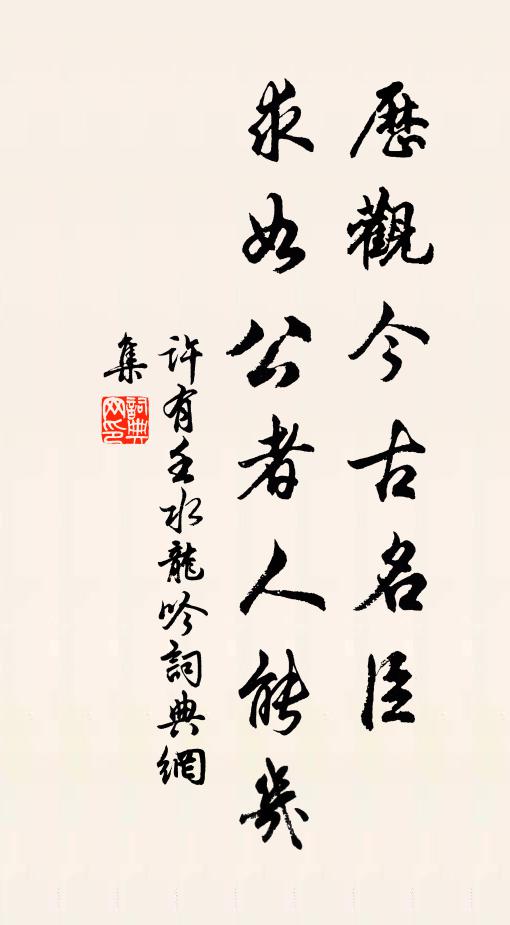 歷觀今古名臣
求如公者人能幾
許有壬水龍吟詞典網
集
詞典網印